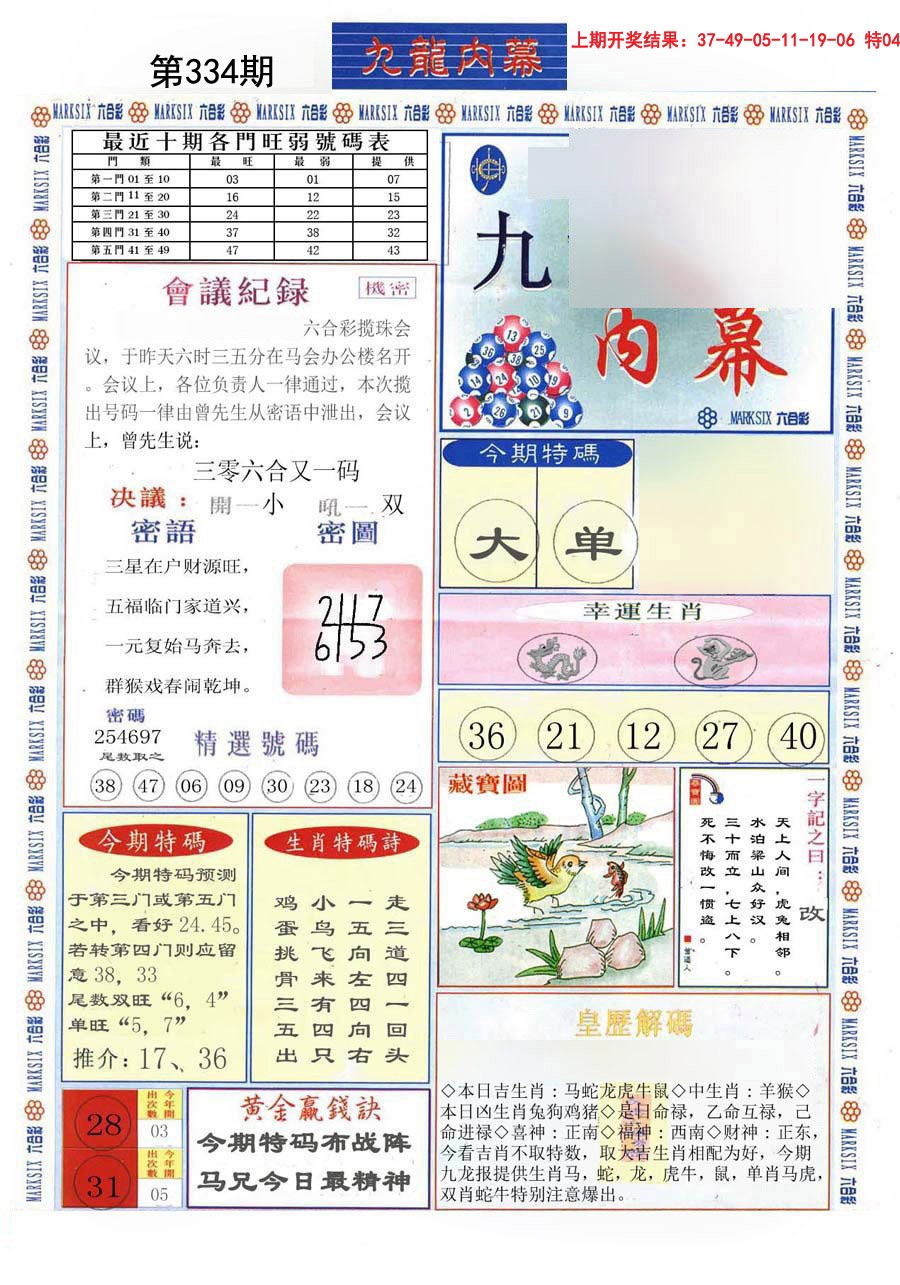 第334期
九龍内幕
上期开奖结果：37-49-05-11-19-06 特04
MARKSIX 六合彩
最近十期各門旺弱號碼表
門 類 最 旺 最 弱 提 供
第一門01至10 03 01 07
第二門11至20 16 12 15
第三門21至30 24 22 23
第四門31至40 37 38 32
第五門41至49 47 42 43
會議紀録
機密
六合彩揽珠会
议，于昨天六时三五分在马会办公楼名开
。会议上，各位负责人一律通过，本次揽
出号码一律由曾先生从密语中泄出，会议
上，曾先生说：
三零六合又一码
决議：開一小 吼一双
密語
密圖
三星在户财源旺，
五福临门家道兴，
一元复始马奔去，
群猴戏春闹乾坤。
2117
6153
密碼
254697
尾数取之
精選號碼
38 47 06 09 30 23 18 24
九
内幕
13
36 38 25
14 24 10 19
2 26 21 9
MARKSIX 六合彩
今期特碼
大 单
幸運生肖
36 21 12 27 40
藏寶圖
一字記之曰：
改
天上人间，虎兔相邻。
水泊梁山众好汉。
三十而立，七上八下。
死不悔改一惯盗。
曾道人
今期特碼
今期特码预测
于第三门或第五门
之中，看好24.45。
若转第四门则应留
意38，33
尾数双旺“6，4”
单旺“5，7”
推介：17、36
生肖特碼詩
走三道四一回头
一五向左四向右
小鸟飞来有四只
鸡蛋挑骨三五出
28
今年開
出次數
03
31
今年開
出次數
05
黄金贏錢訣
今期特码布战阵
马兄今日最精神
皇歷解碼
◇本日吉生肖：马蛇龙虎牛鼠◇中生肖：羊猴◇
本日凶生肖兔狗鸡猪◇是日命禄，乙命互禄，己
命进禄◇喜神：正南◇福神：西南◇财神：正东，
今看吉肖不取特数，取大吉生肖相配为好，今期
九龙报提供生肖马，蛇，龙，虎牛，鼠，单肖马虎，
双肖蛇牛特别注意爆出。